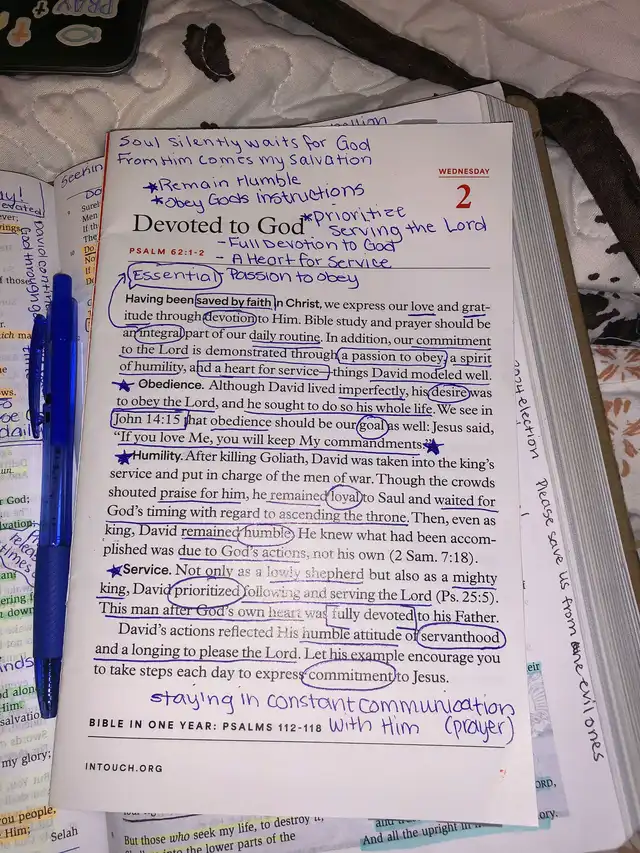 PRAY
Soul silently waits for God
From Him comes my Salvation
WEDNESDAY
2
★Remain Humble
★Obey Gods instructions
★prioritize
serving the Lord
Devoted to God
- Full Devotion to God
PSALM 62:1-2
- A Heart for Service
Essential Passion to obey
Having been saved by faith in Christ, we express our love and grat-
itude through devotion to Him. Bible study and prayer should be
an integral part of our daily routine. In addition, our commitment
to the Lord is demonstrated through a passion to obey, a spirit
of humility, and a heart for service—things David modeled well.
★ Obedience. Although David lived imperfectly, his desire was
to obey the Lord, and he sought to do so his whole life. We see in
John 14:15 that obedience should be our goal as well: Jesus said,
“If you love Me, you will keep My commandments.” ★
★ Humility. After killing Goliath, David was taken into the king’s
service and put in charge of the men of war. Though the crowds
shouted praise for him, he remained loyal to Saul and waited for
God’s timing with regard to ascending the throne. Then, even as
king, David remained humble. He knew what had been accom-
plished was due to God’s actions, not his own (2 Sam. 7:18).
★ Service. Not only as a lowly shepherd but also as a mighty
king, David prioritized following and serving the Lord (Ps. 25:5).
This man after God’s own heart was fully devoted to his Father.
David’s actions reflected His humble attitude of servanthood
and a longing to please the Lord. Let his example encourage you
to take steps each day to express commitment to Jesus.
staying in constant communication
with Him (prayer)
BIBLE IN ONE YEAR: PSALMS 112-118
INTOUCH.ORG
2024 election
Please save us from the evil ones
my glory;
you people,
Him;
Selah
But those who seek my life, to destroy it,
into the lower parts of the
And all the upright in